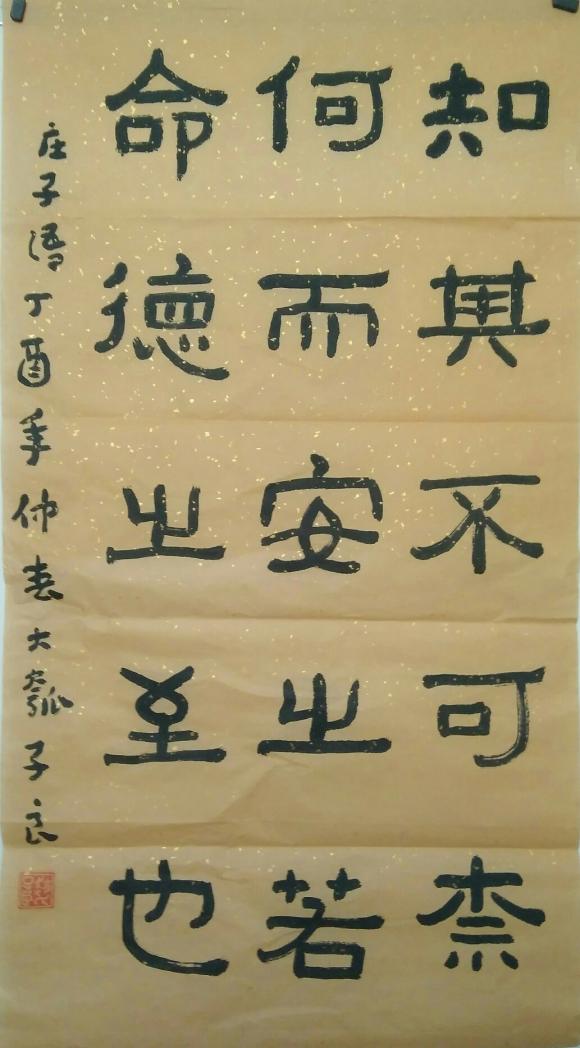 知其不可柰
何而安之若
命德之至也
庄子语丁酉年仲春大瓠子良